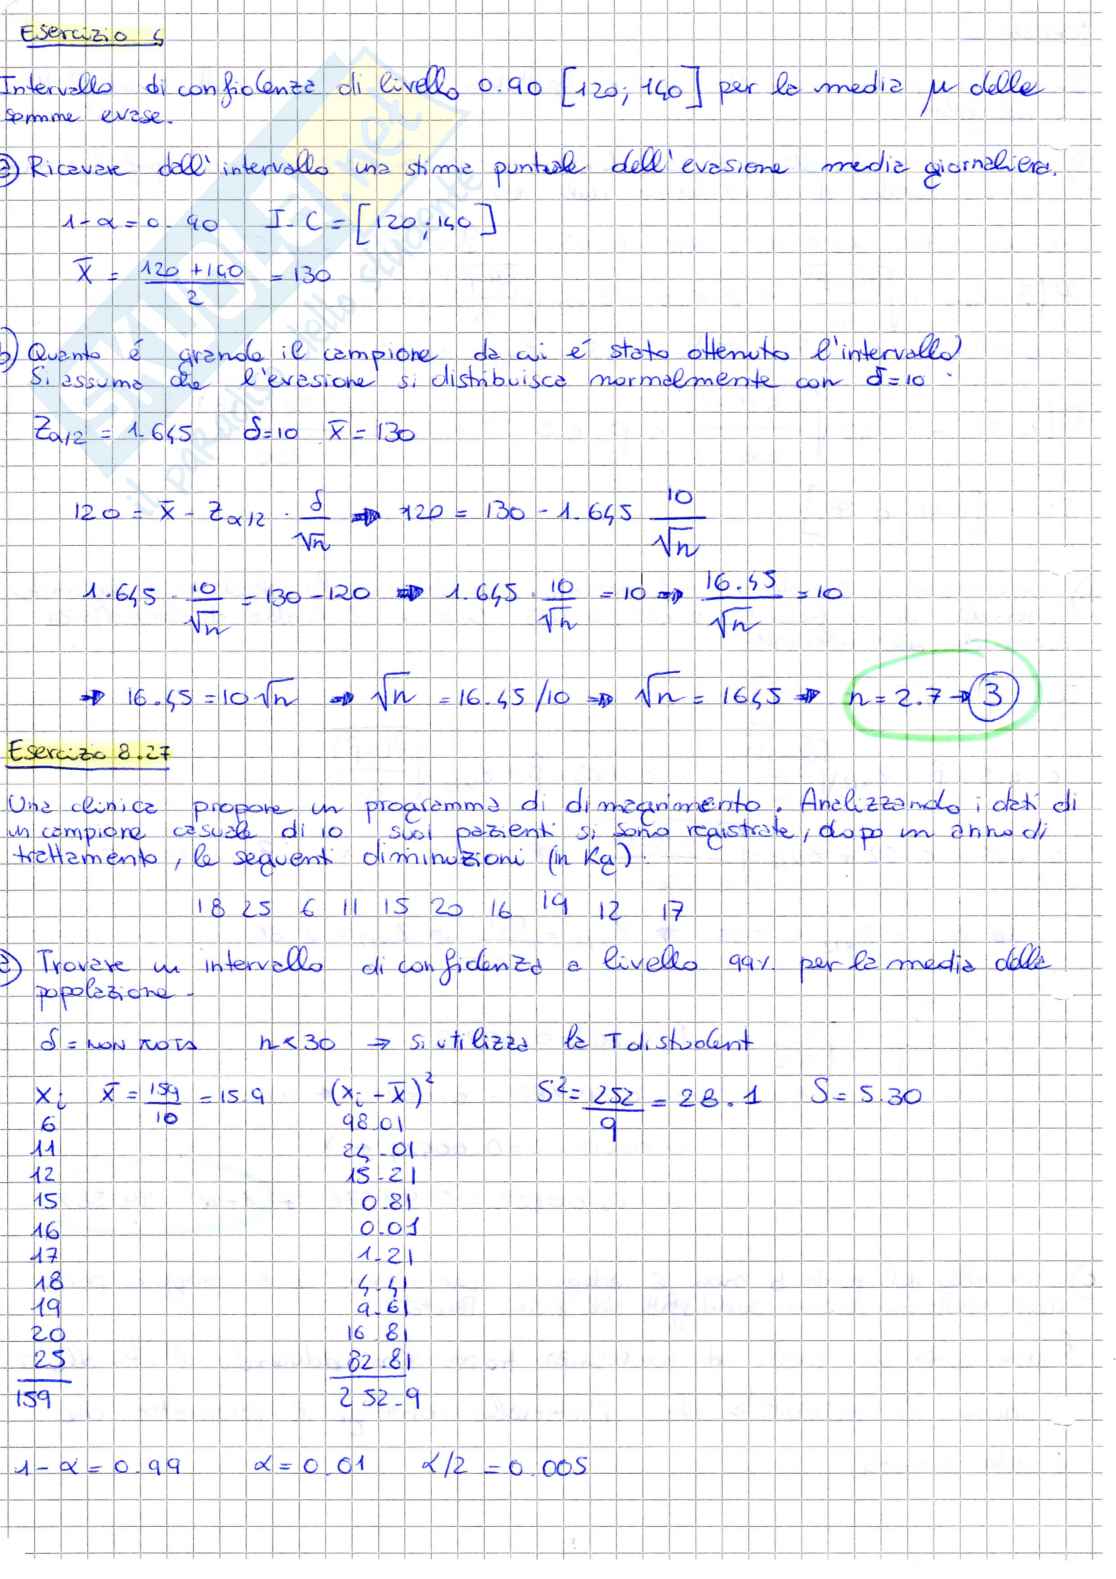 Esercizio 4
Intervallo di confidenza di livello 0.90 [120; 140] per la media μ delle
somme evase.
a) Ricavare dall'intervallo una stima puntuale dell'evasione media giornaliera.
1-α = 0.90 I.C = [120; 140]
X̄ = (120 + 140)/2 = 130
b) Quanto é grande il campione da cui é stato ottenuto l'intervallo?
Si assuma che l'evasione si distribuisca normalmente con δ=10.
Zα/2 = 1.645 δ=10 x̄ = 130
120 = x̄ - Zα/2 · δ/√n ⇒ 120 = 130 - 1.645 10/√n
1.645 · 10/√n = 130-120 ⇒ 1.645 · 10/√n = 10 ⇒ 16.45/√n = 10
⇒ 16.45 = 10√n ⇒ √n = 16.45/10 ⇒ √n = 1645 ⇒ n = 2.7 → 3
Esercizo 8.27
Una clinica propone un programma di dimagrimento. Analizzando i dati di
un campione casuale di 10 suoi pazienti si sono registrate, dopo un anno di
trattamento, le seguenti diminuzioni (in Kg).
18 25 6 11 15 20 16 19 12 17
a) Trovare un intervallo di confidenza a livello 99% per la media della
popolazione.
δ = NON NOTA n<30 → si utilizza la T di student
Xi X̄ = 159/10 = 15.9 (xi - x̄)² S² = 252/9 = 28.1 S = 5.30
6 98.01
11 24.01
12 15.21
15 0.81
16 0.01
17 1.21
18 4.41
19 9.61
20 16.81
25 82.81
159 252.9
1-α = 0.99 α = 0.01 α/2 = 0.005
SKUOLA.net
il paradiso dello studente